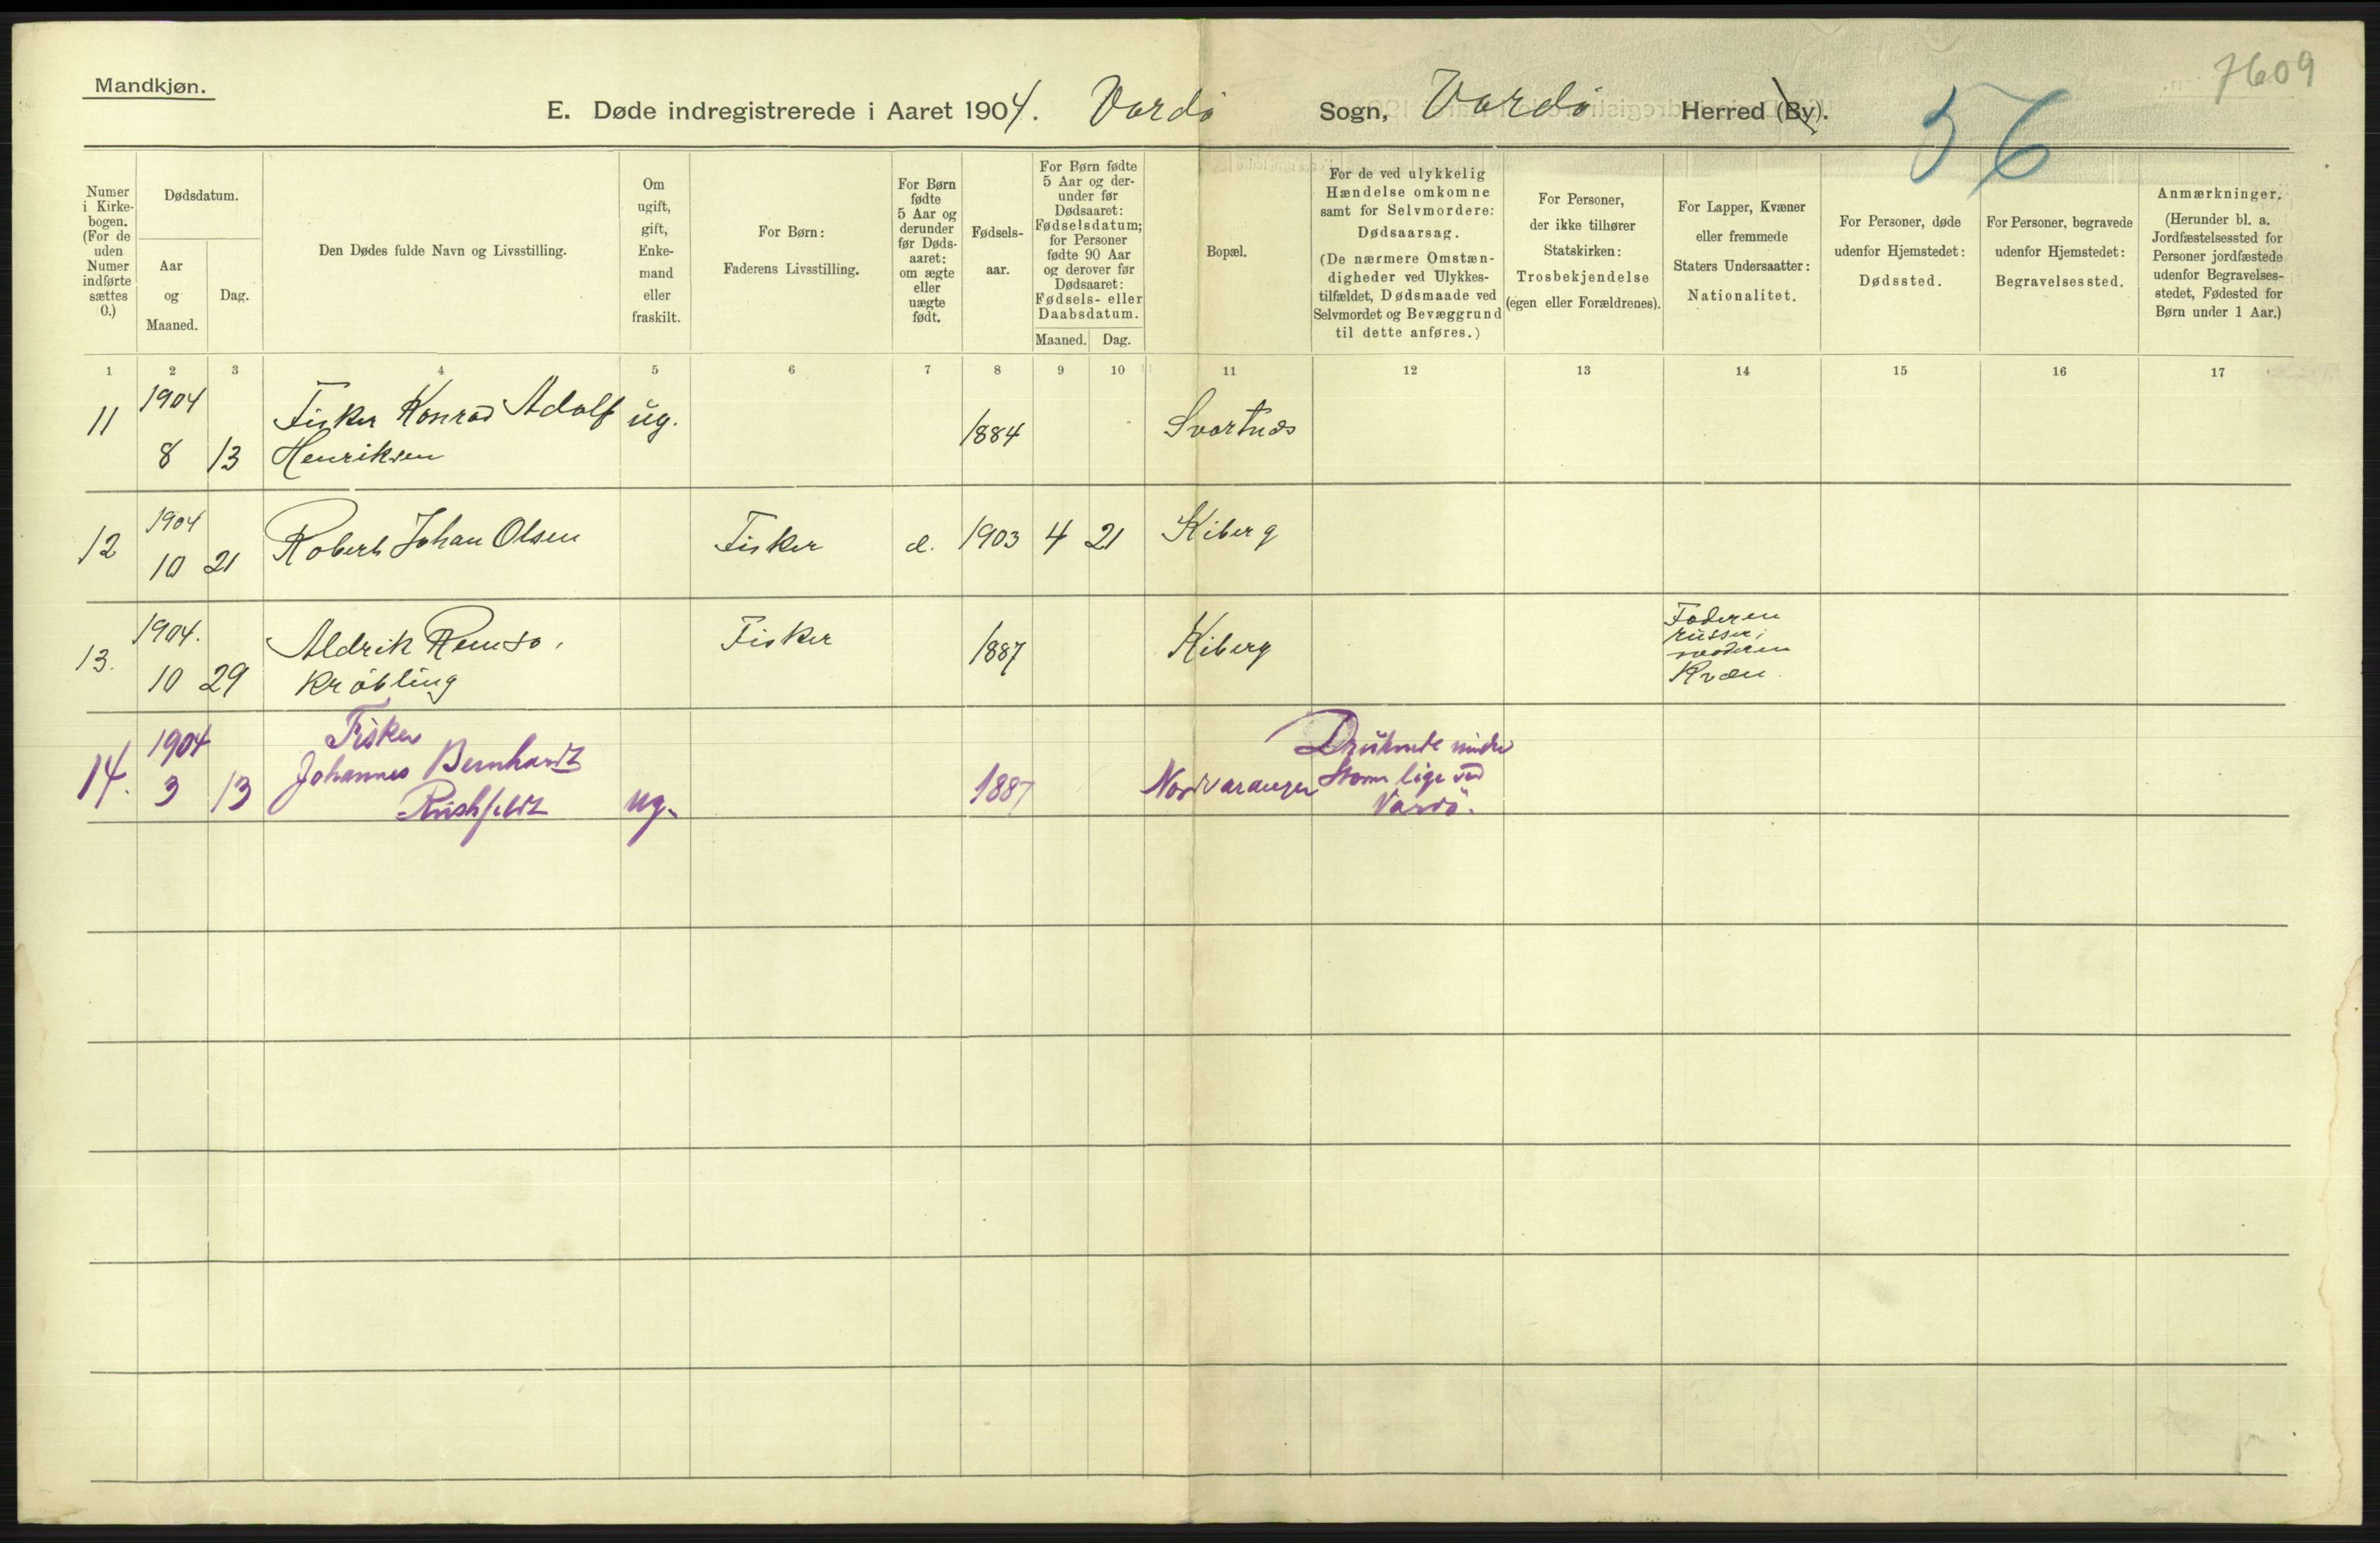 Mandkjøn.
7609
E. Døde indregistrerede i Aaret 1904. Vardø Sogn, Vardø Herred (By).
56
Numer
i Kirke-
bogen.
(For de
uden
Numer
indførte
sættes
0.)
Dødsdatum.
Aar
og
Maaned.
Dag.
Den Dødes fulde Navn og Livsstilling.
Om
ugift,
gift,
Enke-
mand
eller
fraskilt.
For Børn:
Faderens Livsstilling.
For Børn
fødte
5 Aar og
derunder
før Døds-
aaret:
om ægte
eller
uægte
født.
Fødsels-
aar.
For Børn fødte
5 Aar og der-
under før
Dødsaaret:
Fødselsdatum;
for Personer
fødte 90 Aar
og derover før
Dødsaaret:
Fødsels- eller
Daabsdatum.
Maaned. Dag.
Bopæl.
For de ved ulykkelig
Hændelse omkomne
samt for Selvmordere:
Dødsaarsag.
(De nærmere Omstæn-
digheder ved Ulykkes-
tilfældet, Dødsmaade ved
Selvmordet og Bevæggrund
til dette anføres.)
For Personer,
der ikke tilhører
Statskirken:
Trosbekjendelse
(egen eller Forældrenes).
For Lapper, Kvæner
eller fremmede
Staters Undersaatter:
Nationalitet.
For Personer, døde
udenfor Hjemstedet:
Dødssted.
For Personer, begravede
udenfor Hjemstedet:
Begravelsessted.
Anmærkninger.
(Herunder bl. a.
Jordfæstelsessted for
Personer jordfæstede
udenfor Begravelses-
stedet, Fødested for
Børn under 1 Aar.)
1 2 3 4 5 6 7 8 9 10 11 12 13 14 15 16 17
1904
11 Fisker Konrad Adolf ug. 1884 Svartnæs
8 13 Henriksen
1904
12 10 21 Robert Johan Olsen Fisker 1903 4 21 Kiberg
1904.
13. Aldrik Fisker 1887 Kiberg
10 29
Faderen
russer;
moderen
Kvæn.
Fisker
1904
14. Johannes Bernhardt
3 13 Rushfeldt ug. 1887 Nordvaranger
Druknede under
Storm lige ved
Vardö.